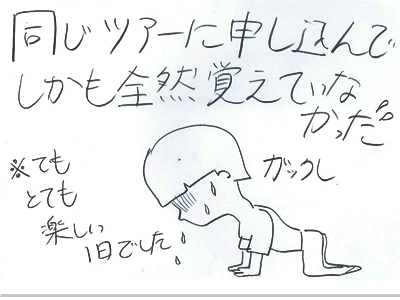 同じツアーに申し込んで
しかも全然覚えていな
かった
ガックし
※ても
とても
楽しい
1日でした